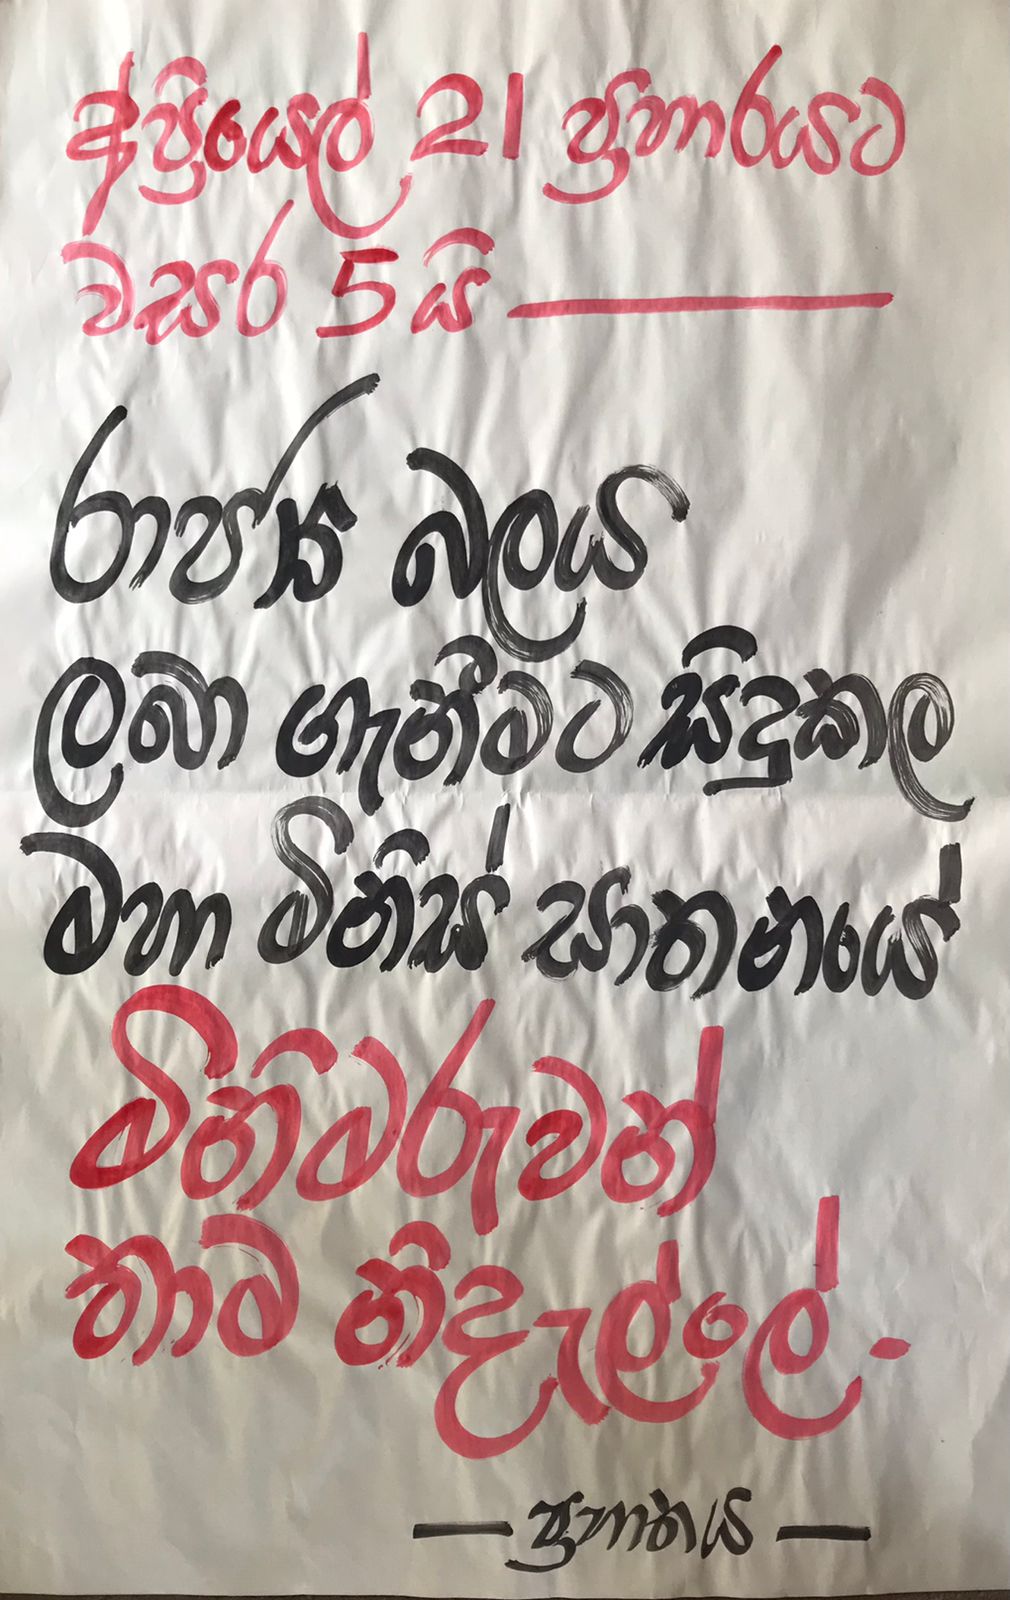 අප්‍රියෙල් 21 ප්‍රහාරයට
වසර 5 යි
රාජ්‍ය බලයි
ලබා ගැනීමට සිදුකල
මහා මිනිස් ඝාතනයේ
මිනිමරුවන්
තාම නිදැල්ලේ.